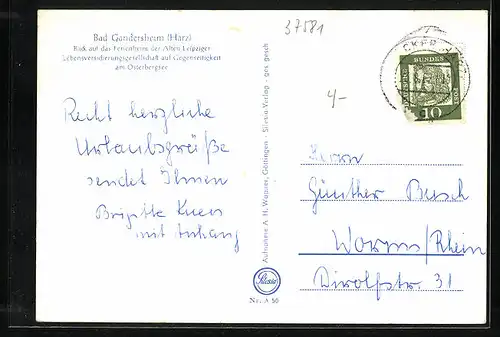 Bad Gandersheim (Harz)
Blick auf das Ferienheim der Alten Leipziger
Lebensversicherungsgesellschaft auf Gegenseitigkeit
am Osterbergsee
37581
4-
DEUTSCHE
BUNDES
POST
10
Recht herzliche
Urlaubsgrüße
sendet Ihnen
Brigitte
mit Anhang
Aufnahme A. H. Wagner, Göttingen · Verlag · ges. gesch.
Nr. A 50
Herrn
Günther Busch
Worms/Rhein
Dirolfstr. 31